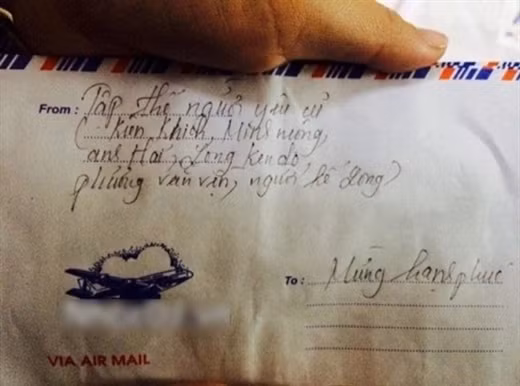 From : Tập thể người yêu cũ
( Kiên Khích, Minh mỏng,
anh Hai, Long Kendo,
phương vân vịn, người kế Long)
To : Mừng hạnh phúc
VIA AIR MAIL